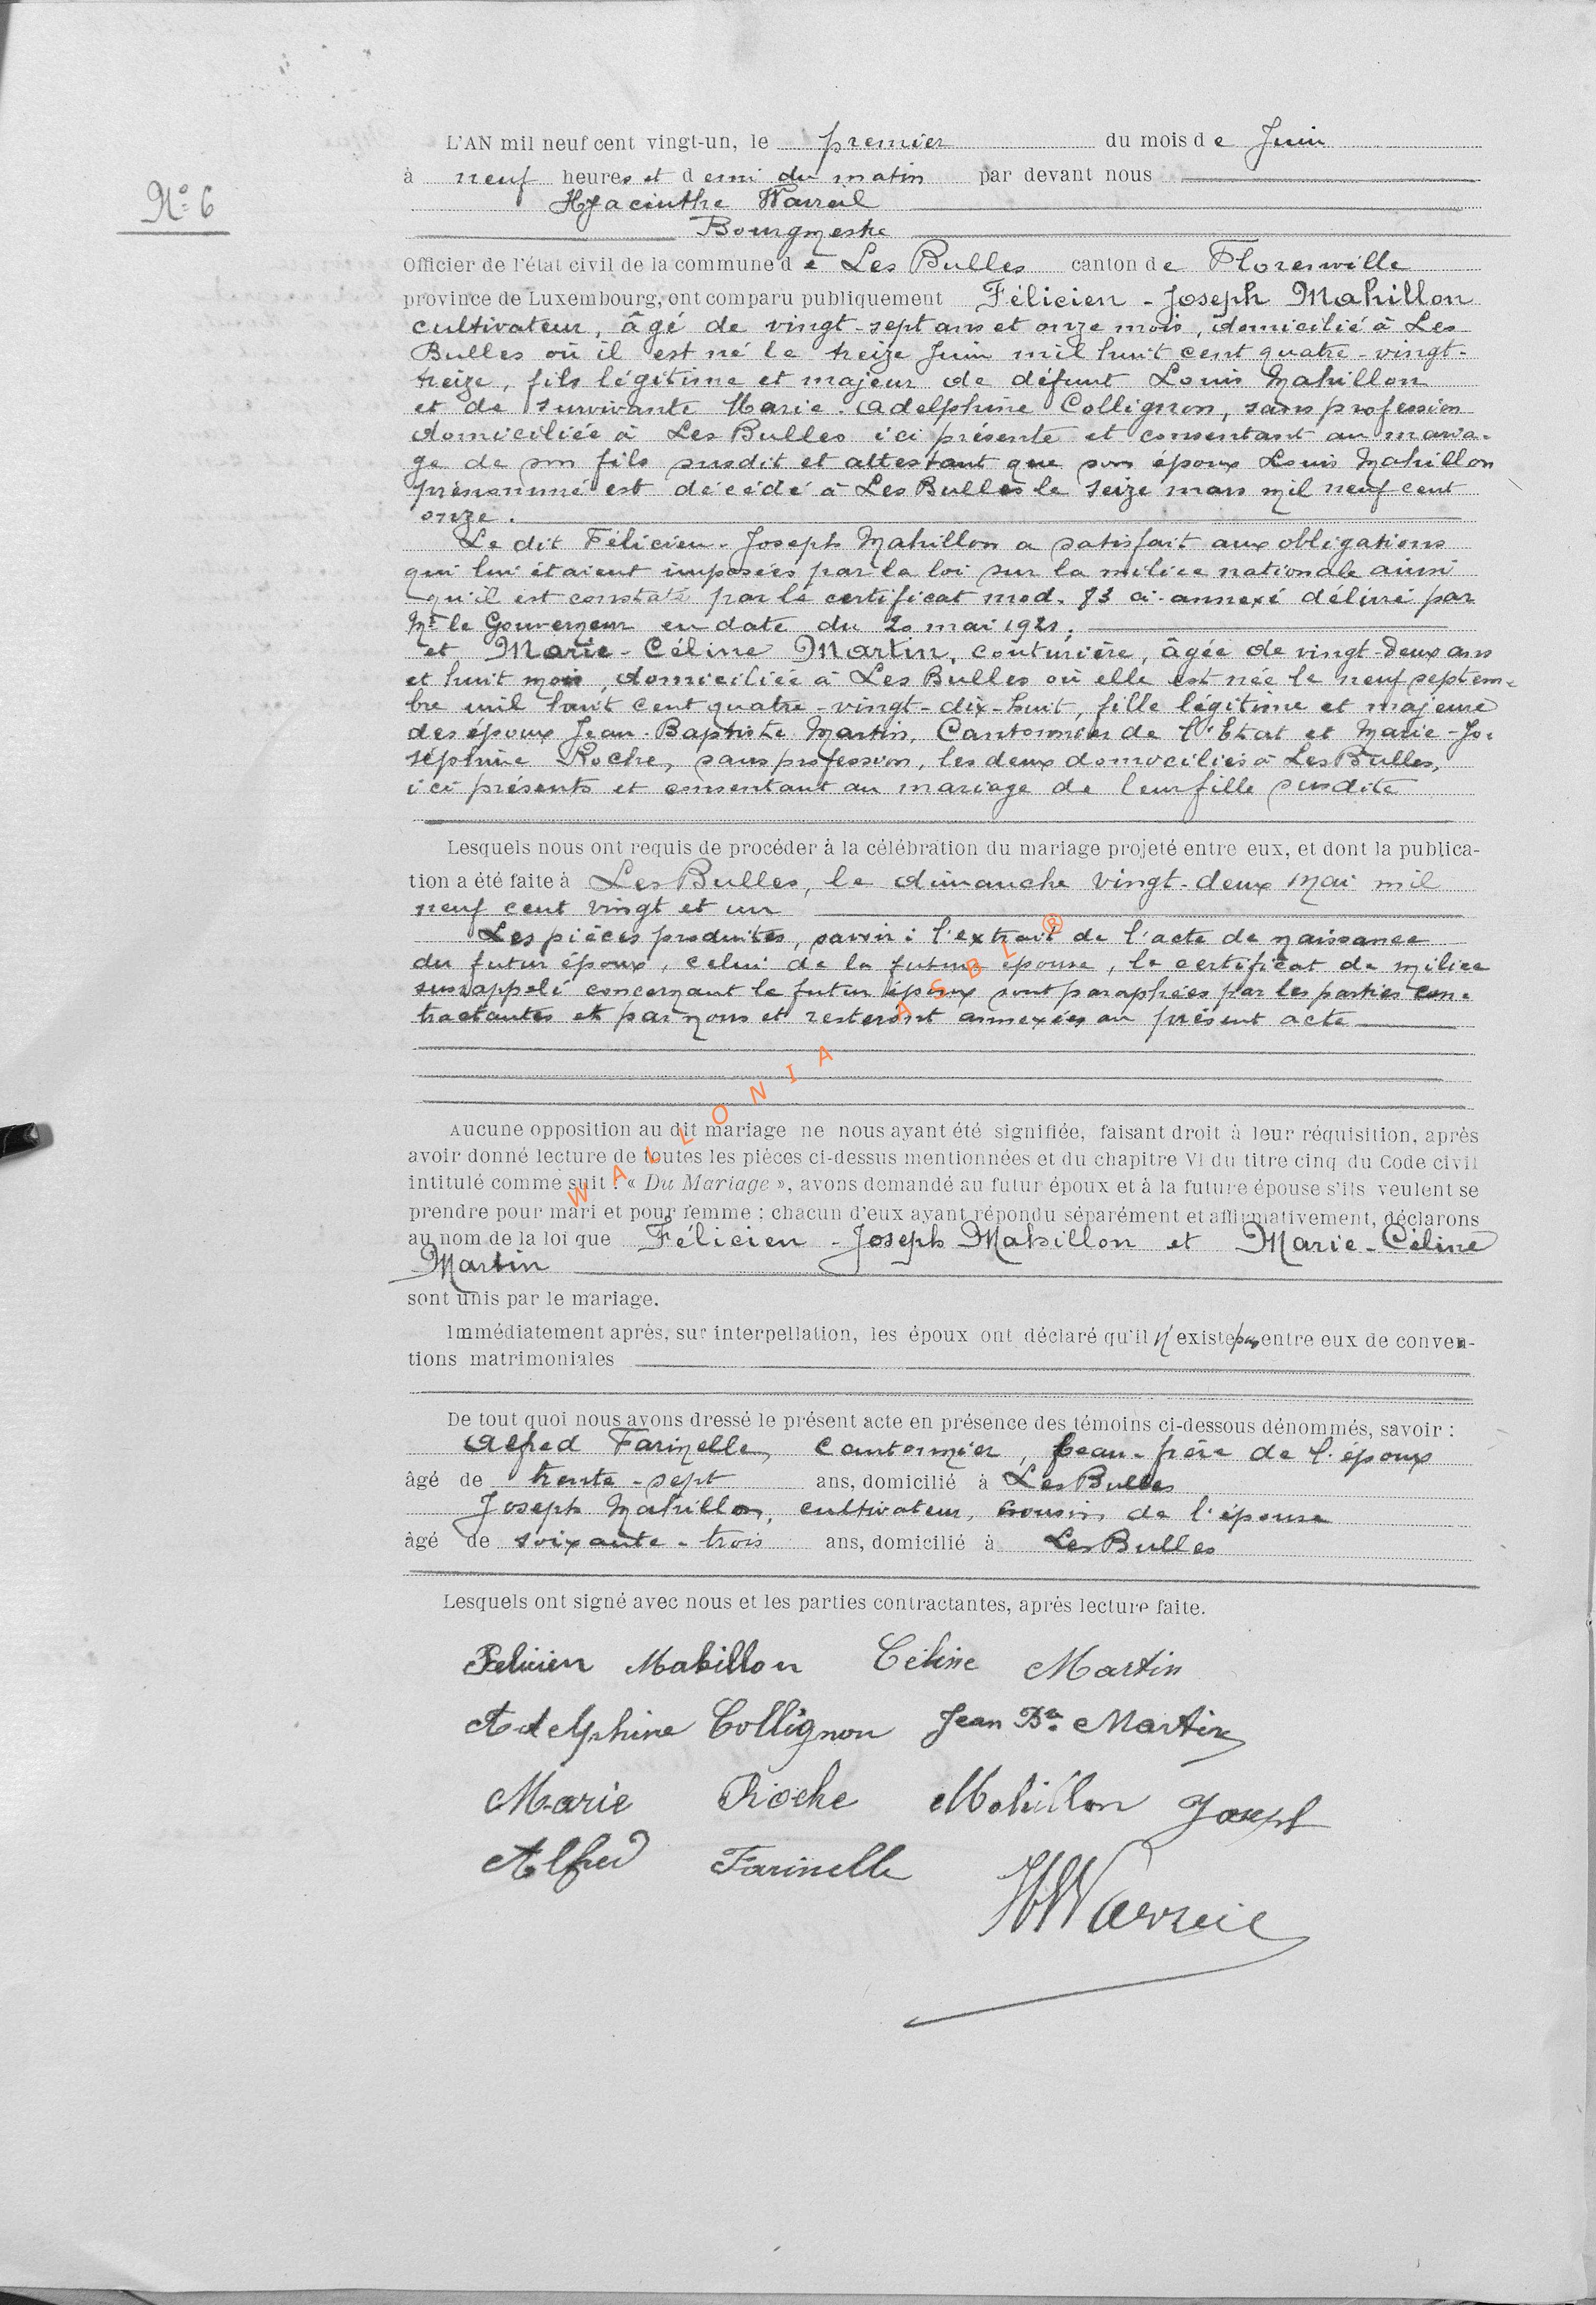 L'AN mil neuf cent vingt-un, le premier du mois de Juin
N° 6
à neuf heures et demi du matin par devant nous
Hyacinthe Warreil
Bourgmestre
Officier de l'état civil de la commune de Les Bulles canton de Florenville
province de Luxembourg, ont comparu publiquement Félicien - Joseph Mahillon
cultivateur, âgé de vingt-sept ans et onze mois, domicilié à Les
Bulles où il est né le treize Juin mil huit cent quatre-vingt-
treize, fils légitime et majeur de défunt Louis Mahillon
et de survivante Marie-Adelphine Collignon, sans profession
domiciliée à Les Bulles ici présente et consentant au maria-
ge de son fils susdit et attestant que son époux Louis Mahillon
prénommé est décédé à Les Bulles le seize mars mil neuf cent
onze.
Le dit Félicien-Joseph Mahillon a satisfait aux obligations
qui lui étaient imposées par la loi sur la milice nationale ainsi
qu'il est constaté par le certificat mod. 83 ci-annexé délivré par
Mr le Gouverneur en date du 20 mai 1921.
et Marie-Céline Martin, couturière, âgée de vingt-deux ans
et huit mois, domiciliée à Les Bulles où elle est née le neuf septem-
bre mil huit cent quatre-vingt-dix-huit, fille légitime et majeure
des époux Jean-Baptiste Martin, Cantonnier de l'Etat et Marie-Jo-
séphine Roche, sans profession, les deux domiciliés à Les Bulles,
ici présents et consentant au mariage de leur fille susdite
Lesquels nous ont requis de procéder à la célébration du mariage projeté entre eux, et dont la publica-
tion a été faite à Les Bulles, le dimanche vingt-deux mai mil
neuf cent vingt et un
Les pièces produites, savoir : l'extrait de l'acte de naissance
du futur époux, celui de la future épouse, le certificat de milice
susrappelé concernant le futur époux sont paraphées par les parties con-
tractantes et par nous et resteront annexées au présent acte
WALLONIA ASBL ®
Aucune opposition au dit mariage ne nous ayant été signifiée, faisant droit à leur réquisition, après
avoir donné lecture de toutes les pièces ci-dessus mentionnées et du chapitre VI du titre cinq du Code civil
intitulé comme suit : « Du Mariage », avons demandé au futur époux et à la future épouse s'ils veulent se
prendre pour mari et pour femme ; chacun d'eux ayant répondu séparément et affirmativement, déclarons
au nom de la loi que Félicien - Joseph Mahillon et Marie-Céline
Martin
sont unis par le mariage.
Immédiatement après, sur interpellation, les époux ont déclaré qu'il n'existe pas entre eux de conven-
tions matrimoniales
De tout quoi nous avons dressé le présent acte en présence des témoins ci-dessous dénommés, savoir :
Alfred Farinelle, cantonnier, beau-frère de l'époux
âgé de trente-sept ans, domicilié à Les Bulles
Joseph Mahillon, cultivateur, cousin de l'épouse
âgé de soixante-trois ans, domicilié à Les Bulles
Lesquels ont signé avec nous et les parties contractantes, après lecture faite.
Felicien Mahillon Céline Martin
Adelphine Collignon Jean Bte Martin
Marie Roche Mahillon Joseph
Alfred Farinelle
H Warreil